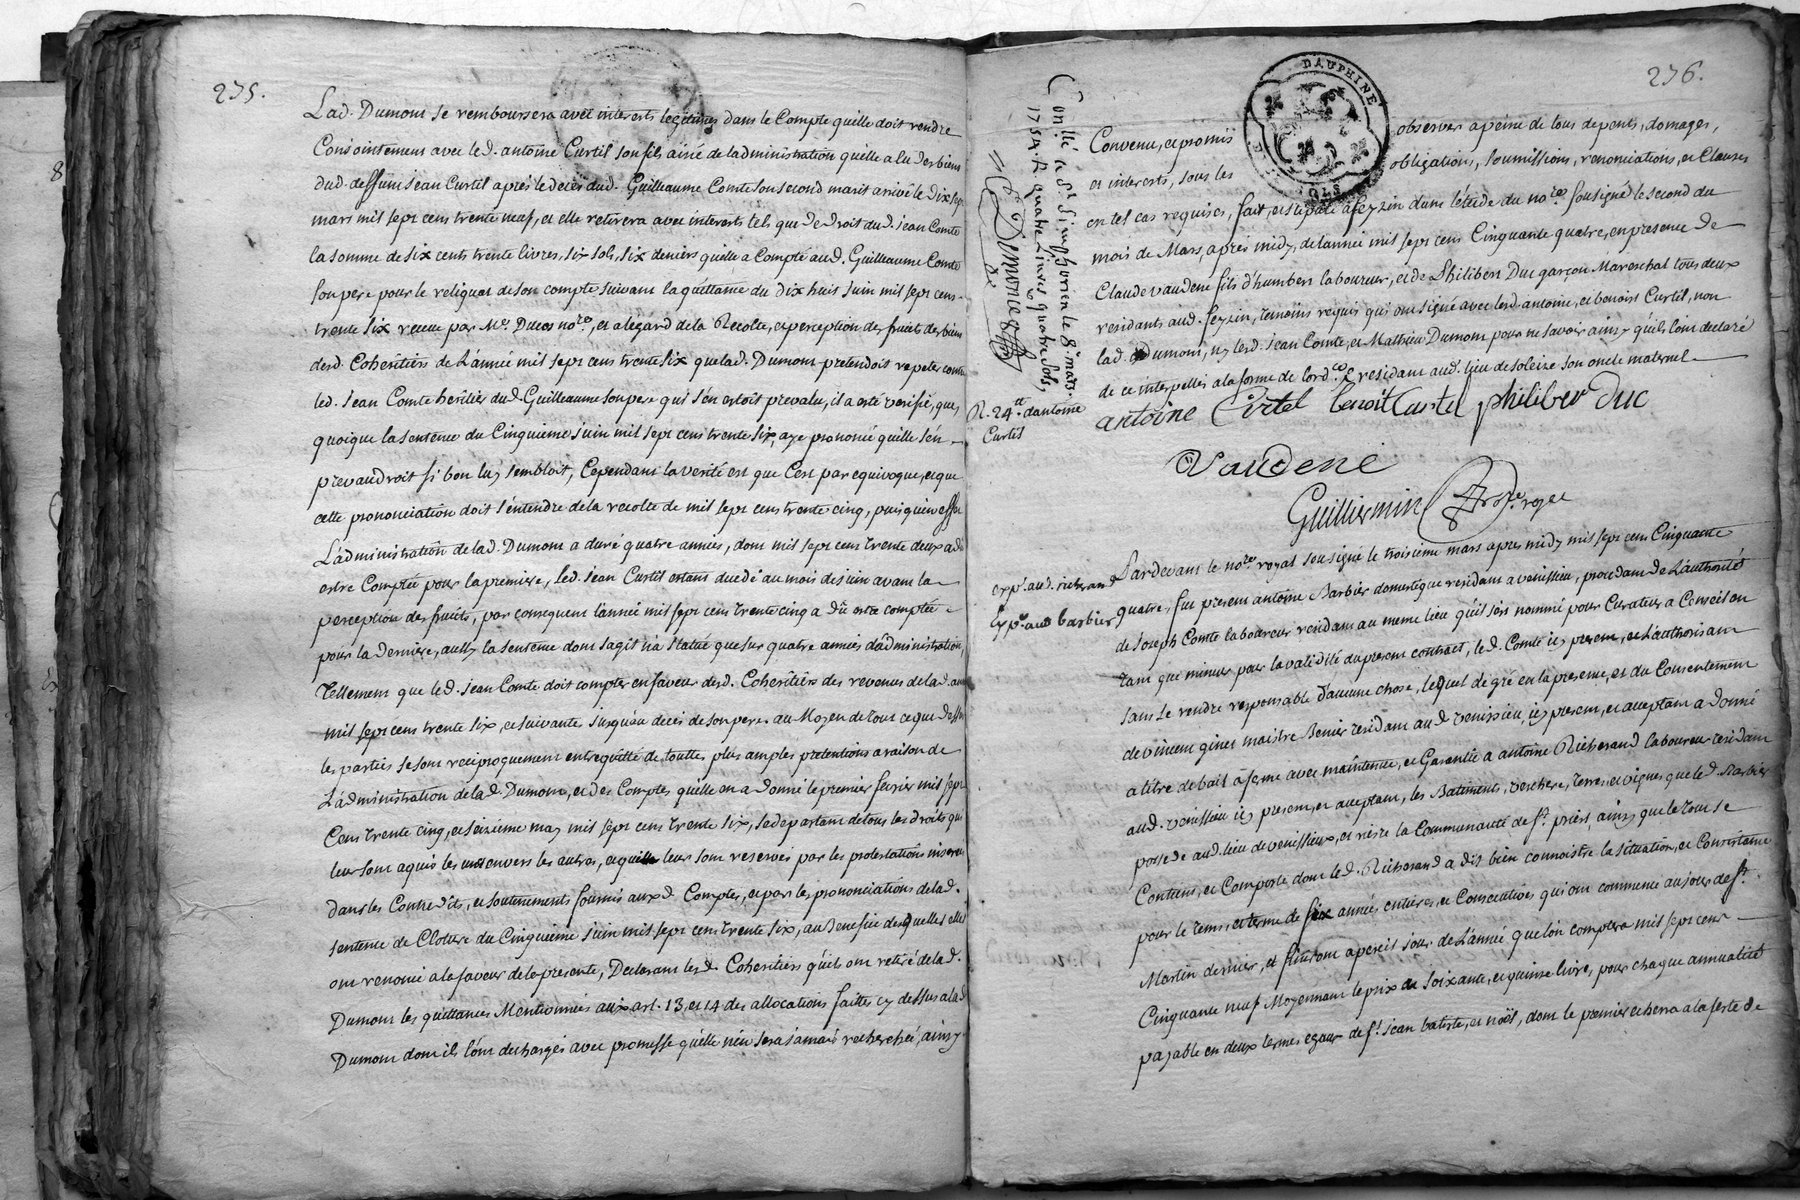 275.
Lad. Dumont se remboursera avec interests legitimes dans le Compte quelle doit rendre
Conjointement avec led. antoine Curtil son fils ainé de ladministration quelle a lu des biens
dud. deffunt Jean Curtil aprés le deces dud. Guilleaume Comte son second mari arrivé le dix sept
mars mil sept cens trente neuf, et elle retirera avec interests tels que de droit dud. Jean Comte
la somme de six cents trente livres, six sols, six deniers quelle a Compté aud. Guilleaume Comte
son pere pour le reliquat de son compte suivant la quittance du dix huit Juin mil sept cens
trente six receue par Me. Ducos nore., et a legard de la Recolte, et perception des fruits des biens
desd. Coheritiers de L'année mil sept cens trente six que lad. Dumont pretendoit repeter contre
led. Jean Comte heritier dud. Guilleaume son pere qui s'en estoit prevalu, il a esté verifié, que,
quoique la sentence du Cinquieme Juin mil sept cens trente six, aye prononcé quelle s'en
prevaudroit si bon luy sembloit, Cependant la verité est que C'est par equivoque, et que
cette prononciation doit s'entendre de la recolte de mil sept cens trente cinq, puis qu'en effet
L'administration de lad. Dumont a duré quatre années, dont mil sept cens trente deux a dû
estre Comptée pour la premiere, led. Jean Curtil estant decedé au mois de Juin avant la
perception des fruits, par consequent l'année mil sept cens trente cinq a dû estre comptée
pour la derniere, aussy la sentence dont sagit n'a statué que sur quatre années d'administration,
Tellement que led. Jean Comte doit compter en faveur desd. Coheritiers des revenus de lad. année
mil sept cens trente six, et suivante jusqu'au deces de son pere. au Moyen de tout ce que dessus
les parties se sont reciproquement entrequitté de touttes plus amples pretentions a raison de
L'administration de lad. Dumont, et des Comptes qu'elle en a donné le premier fevrier mil sept
Cens trente cinq, et seizieme may mil sept cens trente six, se departant de tous les droits qui
leur sont aquis les uns envers les autres, et qui leur sont reservés par les protestations inserées
dans les Contredits, et soutenements fournis auxd. Comptes, et par les prononciations de lad.
sentence de Cloture du Cinquieme Juin mil sept cens trente six, au Benefice desquelles elles
ont renoncé a la faveur de la presente, Declarant lesd. Coheritiers qu'ils ont retiré de lad.
Dumont les quittances Mentionnées aux art. 13, et 14 des allocations faittes cy dessus a lad.
Dumont dont ils l'ont dechargés avec promesse qu'elle n'en sera jamais recherchée, ainsy
276.
DAUPHINE
Convenu, et promis observer a peine de tous depents, domages,
et interests, sous les obligations, soumissions, renonciations, et Clauses
en tel cas requises, fait, et stipulé a feyzin dans l'étude du nore. soussigné le second du
mois de Mars, aprés midy, de lannée mil sept cens Cinquante quatre, en presence de
Claude vaudene fils d'humbert laboureur, et de Philibert Duc garçon Mareschal tous deux
residants aud. feyzin, temoins requis qui ont signé avec lesd. antoine, et benoist Curtil, non
lad. Dumont, ny lesd. Jean Comte, et Mathieu Dumont pour ne savoir ainsy qu'ils l'ont declaré
de ce interpellés a la forme de lordce. residant aud. lieu de solaize son oncle maternel
antoine Curtel benoit Curtel philiber duc
Vaudene
Guilliermin nore. royal
Conllé a St. Simphorien le 8e. mars
1754. R quatre Livres quatre sols,
R. 24tt. dantoine
Curtil
expé. aud. richerand
Expé. aud barbier
Pardevant le nore. royal soussigné le troisieme mars apres midy mil sept cens Cinquante
quatre, fut present antoine Barbier domestique residant a venissieu, procedant de L'authorité
de Joseph Comte laboureur residant au meme lieu qu'il s'est nommé pour Curateur a Conseil en
tant que mineur pour la validité du present contract, led. Comte icy present, et L'authorisant
sans se rendre responsable d'aucune chose, lequel de gré en la presence, et du Consentement
de vincent ginet maistre Benier residant aud. venissieu, icy present, et acceptant a donné
a titre de bail a ferme avec maintenue, et Garantie a antoine Richerand laboureur residant
aud. venissieu icy present, et acceptant, les Batiments, verchere, Terres, et vignes que led. Barbier
possede aud. lieu de venissieux, et riere la Communauté de St. priest, ainsy que le tout se
Contient, et Comporte dont led. Richerand a dit bien connoistre la situation, et Consistance
pour le tems, et terme de six années entieres, et Consecutives qui ont commencé au jour de St.
Martin dernier, et finiront a pareil jour de L'année que l'on comptera mil sept cens
Cinquante neuf Moyennant le prix de soixante, et quinze livres, pour chaque annualité
payable en deux termes egaux de St. Jean batiste, et noël, dont le premier echerra a la feste de